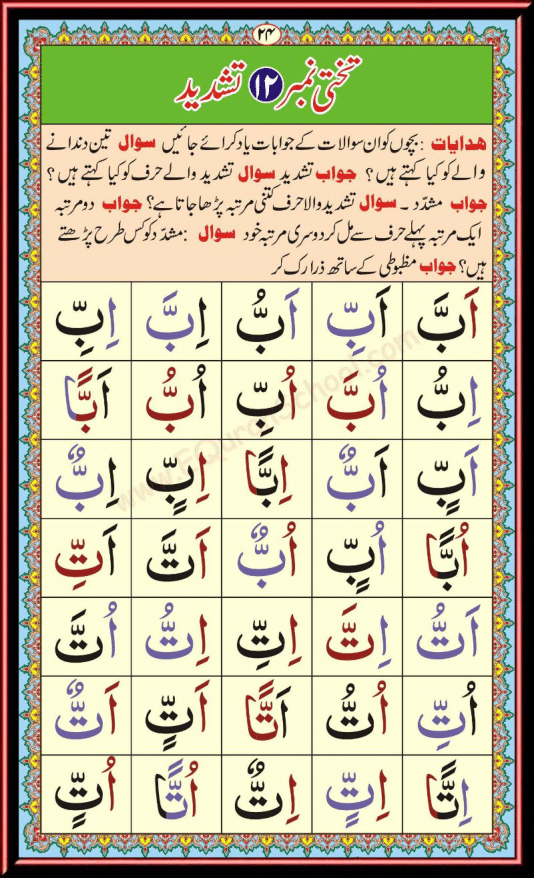 ۲۴
تختی نمبر ۱۲ تشدید
ھدایات : بچوں کو ان سوالات کے جوابات یاد کرائے جائیں سوال تین دندانے
والے کو کیا کہتے ہیں ؟ جواب تشدید سوال تشدید والے حرف کو کیا کہتے ہیں ؟
جواب مشدّد ۔ سوال تشدید والا حرف کتنی مرتبہ پڑھا جاتا ہے؟ جواب دو مرتبہ
ایک مرتبہ پہلے حرف سے مل کر دوسری مرتبہ خود سوال : مشدّد کو کس طرح پڑھتے
ہیں؟ جواب مظبوطی کے ساتھ ذرا رک کر
اَبَّ اَبِّ اَبُّ اِبَّ اِبِّ
اِبُّ اُبَّ اُبِّ اُبُّ اَبًّا
اَبٍّ اَبٌّ اِبًّا اِبٍّ اِبٌّ
اُبًّا اُبٍّ اُبٌّ اَتَّ اَتِّ
اَتُّ اِتَّ اِتِّ اِتُّ اُتَّ
اُتِّ اُتُّ اَتًّا اَتٍّ اَتٌّ
اِتًّا اِتٍّ اِتٌّ اُتًّا اُتٍّ